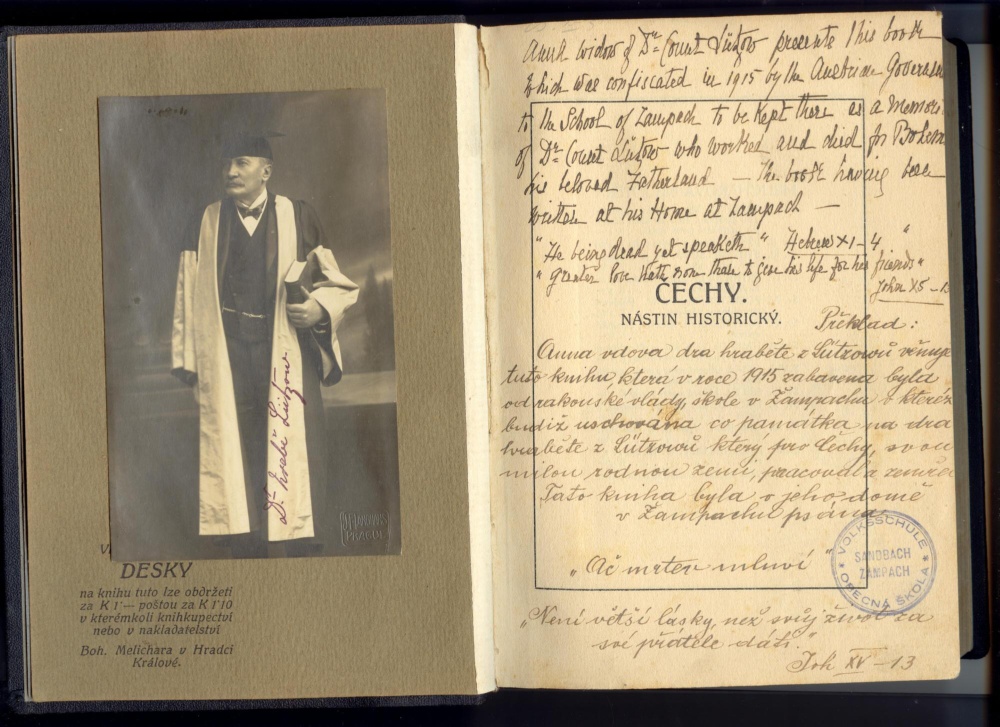 Dr. hrabě Lützow
LANGHANS
PRAGUE
DESKY
na knihu tuto lze obdržeti
za K 1·— poštou za K 1·10
v kterémkoli knihkupectví
nebo v nakladatelství
Boh. Melichara v Hradci
Králové.
Anna widow of Dr. Count Lützow presents this book
which was confiscated in 1915 by the Austrian
to the School of Zampach to be kept there as a
of Dr. Count Lützow who worked and died for
his beloved Fatherland — The book having been
written at his Home at Zampach —
"He being dead yet speaketh" Hebrew XI – 4.
"Greater love hath none than to give his life for his friends"
John XV –
ČECHY.
NÁSTIN HISTORICKÝ.
Překlad:
Anna vdova dra hraběte z Lützowů věnuje
tuto knihu, která v roce 1915 zabavena byla
od rakouské vlády, škole v Žampachu v kteréž
budiž uschována co památka na dra
hraběte z Lützowů který pro Čechy, svou
milou rodnou zemi, pracoval a zemřel
Tato kniha byla v jeho domě
v Žampachu psána.
„Ač mrtev mluví"
VOLKSSCHULE
SANDBACH
ŽAMPACH
OBECNÁ ŠKOLA
„Není větší lásky, než svůj život za
své přátele dáti."
Joh XV – 13